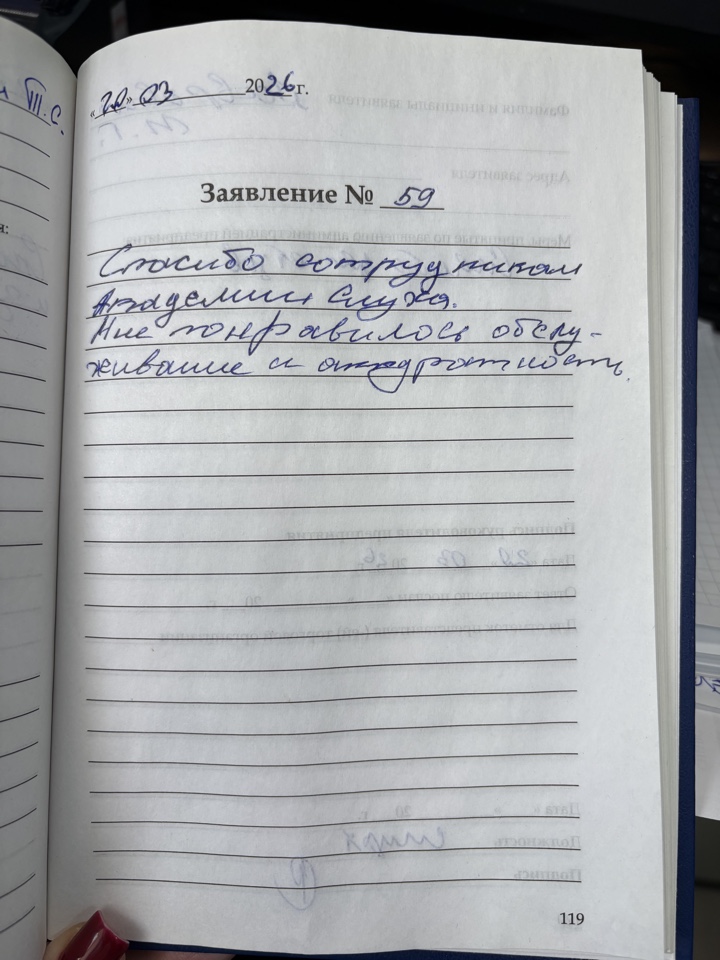 «20» 03 2026 г.
Заявление № 59
Спасибо сотрудникам
Академии Слуха.
Мне понравилось обслу-
живание и аккуратность.
119